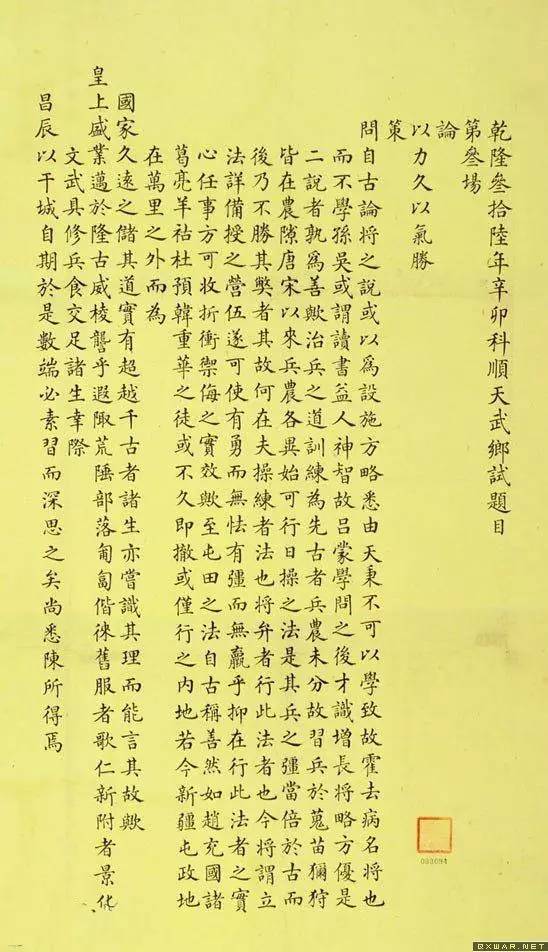 乾隆叁拾陸年辛卯科順天武鄉試題目
第叁場
論
以力久以氣勝
策
問自古論將之說或以為設施方略悉由天秉不可以學致故霍去病名將也
而不學孫吳或謂讀書益人神智故呂蒙學問之後才識增長將略方優是
二說者孰為善歟治兵之道訓練為先古者兵農未分故習兵於蒐苗獮狩
皆在農隙唐宋以來兵農各異始可行日操之法是其兵之彊當倍於古而
後乃不勝其獘者其故何在夫操練者法也將弁者行此法者也今將謂立
法詳備授之營伍遂可使有勇而無怯有彊而無羸乎抑在行此法者之實
心任事方可收折衝禦侮之實效歟至屯田之法自古稱善然如趙充國諸
葛亮羊祜杜預韓重華之徒或不久即撤或僅行之內地若今新疆屯政地
在萬里之外而為
國家久遠之儲其道實有超越千古者諸生亦嘗識其理而能言其故歟
皇上盛業邁於隆古威棱讋乎遐陬荒陲部落匍匐偕徠舊服者歌仁新附者景化
文武具修兵食交足諸生幸際
昌辰以干城自期於是數端必素習而深思之矣尚悉陳所得焉